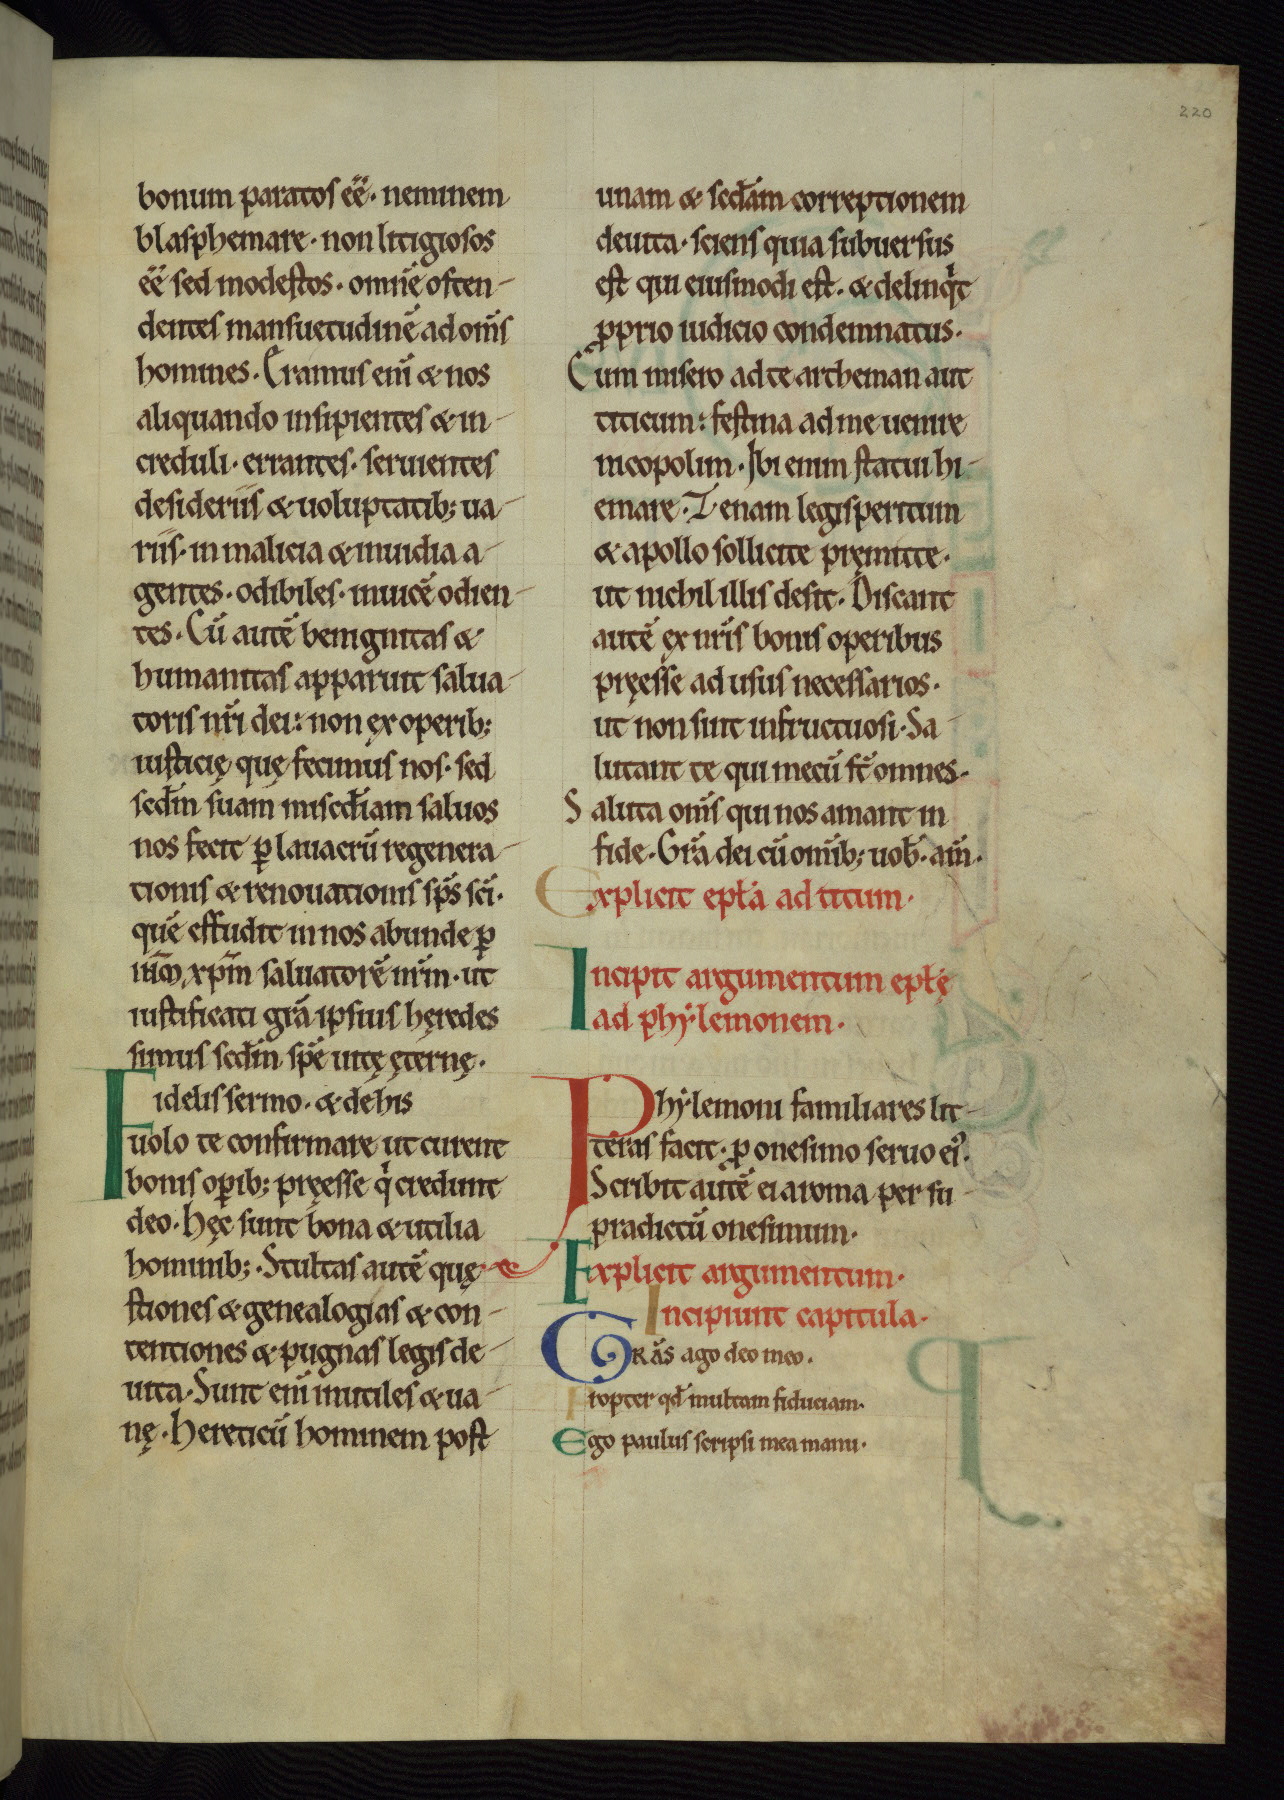 220
bonum paratos eẽ· neminem
blasphemare· non litigiosos
eẽ sed modestos· omnẽ osten-
dentes mansuetudinẽ ad om̃s
homines· Eramus enĩ & nos
aliquando insipientes & in-
creduli· errantes· seruientes
desideriis & uoluptatib; ua-
riis· in malicia & inuidia a-
gentes· odibiles· inuicẽ odien-
tes· Cũ autẽ benignitas &
humanitas apparuit salua-
toris nr̃i dei: non ex operib;
iusticię quę fecimus nos· sed
scdm̃ suam misc̄diam saluos
nos fecit ꝑ lauacrũ regenera-
tionis & renouationis sp̃s sc̃i·
quẽ effudit in nos abunde ꝑ
ih̃m xp̃m saluatorẽ nr̃m· ut
iustificati gr̃a ipsius hęredes
simus scdm̃ spẽ uitę ęternę·
Fidelis sermo· & de his
uolo te confirmare ut curent
bonis oꝑib; pręesse q̇ credunt
deo· Hęc sunt bona & utilia
hominib;· Stultas autẽ quę-
stiones & genealogias & con-
tentiones & pugnas legis de-
uita· Sunt enĩ inutiles & ua-
nę· Hereticũ hominem post
unam & sc̄dam correptionem
deuita· sciens quia subuersus
est qui eiusmodi est· & delinq̇t
ꝓprio iudicio condemnatus·
Cum misero ad te artheman aut
titicum: festina ad me uenire
nicopolim· Ibi enim statui hi-
emare· Zenam legisperitum
& apollo sollicite pręmitte·
ut nichil illis desit· Discant
autẽ & nr̃is bonis operibus
pręesse ad usus necessarios·
ut non sint infructuosi· Sa-
lutant te qui mecũ st̃ omnes·
Saluta om̃s qui nos amant in
fide· Gr̃a dei cũ om̃ib; uob̃· am̃·
Explicit epłã ad titum·
Incipit argumentum epłę
ad phẏlemonem·
Phẏlemoni familiares lit-
teras facit· ꝓ onesimo seruo ei᾿·
Scribit autẽ ei a roma per su-
pradictũ onesimum·
Explicit argumentum·
Incipiunt capitula·
GRÃS ago deo meo·
Propter qđ multam fiduciam·
Ego paulus scripsi mea manu·